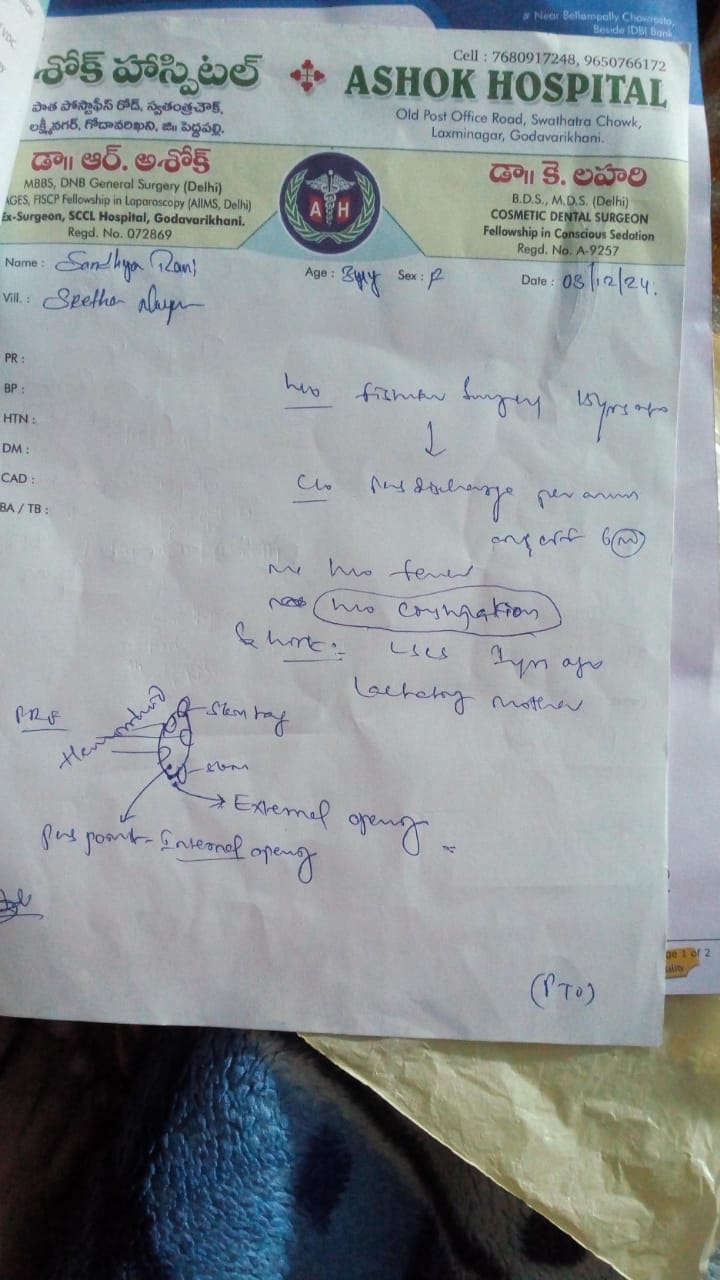 # Near Bellampally Chowrasta,
Beside IDBI Bank
శోక్ హాస్పిటల్
పాత పోస్టాఫీస్ రోడ్, స్వతంత్రచౌక్,
లక్ష్మీనగర్, గోదావరిఖని, జిః పెద్దపల్లి.
Cell : 7680917248, 9650766172
ASHOK HOSPITAL
Old Post Office Road, Swathatra Chowk,
Laxminagar, Godavarikhani.
డా॥ ఆర్. అశోక్
MBBS, DNB General Surgery (Delhi)
AGES, FISCP Fellowship in Laparoscopy (AIIMS, Delhi)
Ex-Surgeon, SCCL Hospital, Godavarikhani.
Regd. No. 072869
A H
డా॥ కె. లహరి
B.D.S., M.D.S. (Delhi)
COSMETIC DENTAL SURGEON
Fellowship in Conscious Sedation
Regd. No. A-9257
Name : Sandhya Rani Age : Sex : F Date : 03/12/24.
Vill. :
PR :
BP :
HTN :
DM :
CAD :
BA / TB :
h/o Surgery ago
↓
c/o Pus discharge per
h/o fever
h/o constipation
LSCS ago
Lactating mother
Skin tag
Hemorrhoid
External opening
Pus point - Internal opening
(PTO)
ge 1 of 2
ality